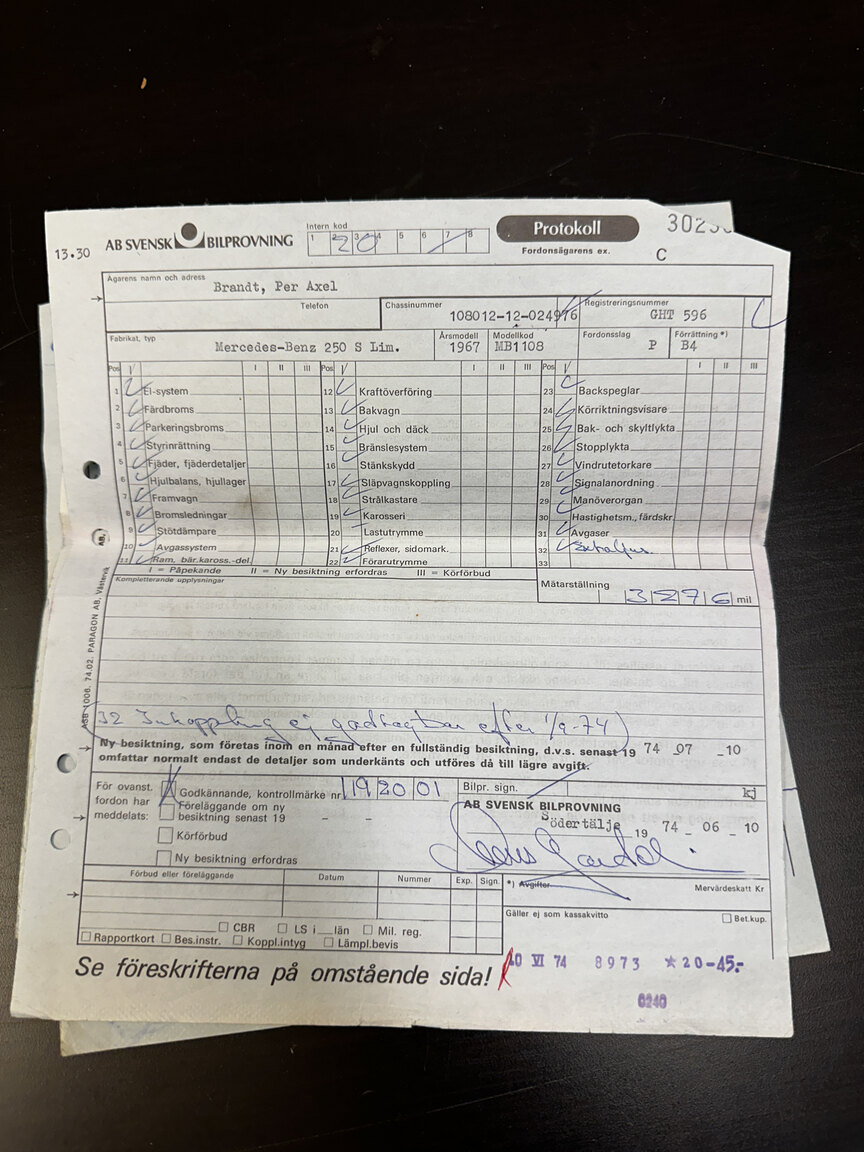 13.30 AB SVENSK BILPROVNING
Intern kod
1 2 3 4 5 6 7 8
20
Protokoll
Fordonsägarens ex.
C
Ägarens namn och adress
Brandt, Per Axel
Telefon
Chassinummer
108012-12-024976
Registreringsnummer
GHT 596
Fabrikat, typ
Mercedes-Benz 250 S Lim.
Årsmodell
1967
Modellkod
MB1108
Fordonsslag
P
Förrättning *)
B4
Pos V I II III Pos V I II III Pos V I II III
1 El-system
2 Färdbroms
3 Parkeringsbroms
4 Styrinrättning
5 Fjäder, fjäderdetaljer
6 Hjulbalans, hjullager
7 Framvagn
8 Bromsledningar
9 Stötdämpare
10 Avgassystem
11 Ram, bär.kaross.-del.
12 Kraftöverföring
13 Bakvagn
14 Hjul och däck
15 Bränslesystem
16 Stänkskydd
17 Släpvagnskoppling
18 Strålkastare
19 Karosseri
20 Lastutrymme
21 Reflexer, sidomark.
22 Förarutrymme
23 Backspeglar
24 Körriktningsvisare
25 Bak- och skyltlykta
26 Stopplykta
27 Vindrutetorkare
28 Signalanordning
29 Manöverorgan
30 Hastighetsm., färdskr.
31 Avgaser
32
33
I = Påpekande II = Ny besiktning erfordras III = Körförbud
Kompletterande upplysningar
Mätarställning
3276 mil
32 Inkoppling ej godtagbar efter 1/9-74)
Ny besiktning, som företas inom en månad efter en fullständig besiktning, d.v.s. senast 19 74 07 -10
omfattar normalt endast de detaljer som underkänts och utföres då till lägre avgift.
För ovanst.
fordon har
meddelats:
Godkännande, kontrollmärke nr 192001
Föreläggande om ny
besiktning senast 19 - -
Körförbud
Ny besiktning erfordras
Bilpr. sign.
kj
AB SVENSK BILPROVNING
Södertälje 19 74 - 06 - 10
Förbud eller föreläggande
Datum
Nummer
Exp.
Sign.
*) Avgifter
Mervärdeskatt Kr
Gäller ej som kassakvitto
Bet.kup.
CBR LS i län Mil. reg.
Rapportkort Bes.instr. Koppl.intyg Lämpl.bevis
Se föreskrifterna på omstående sida!
10 VI 74 8973 *20-45.-
0240
ASB 1006. 74.02. PARAGON AB, Västervik